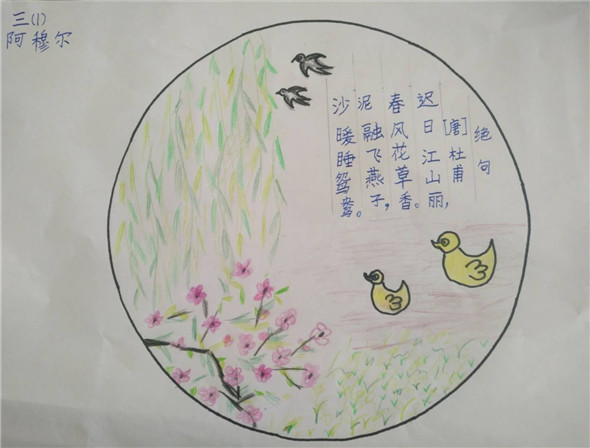 三(1)
阿穆尔
绝句
[唐]杜甫
迟日江山丽,
春风花草香。
泥融飞燕子,
沙暖睡鸳鸯。